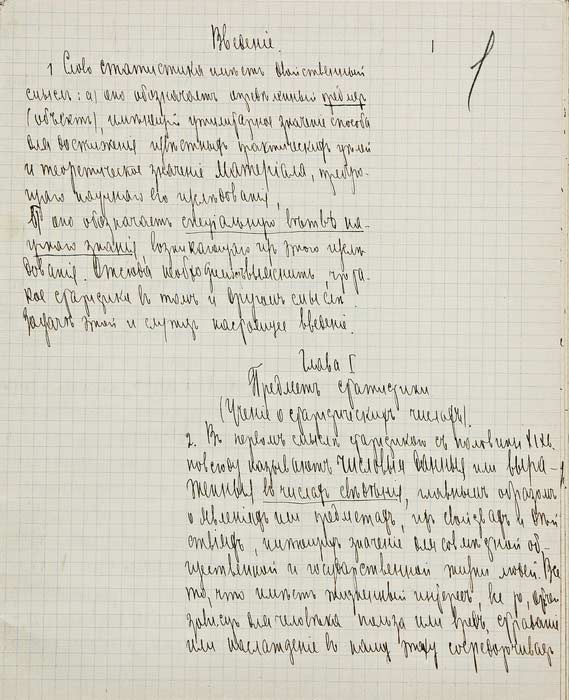 Введеніе.
1
1 Слово статистика имѣетъ двойственный
смыслъ: а) оно обозначаетъ опредѣленный предмет
(объектъ), имѣющій утилитарное значеніе способа
для достиженія извѣстныхъ практическихъ цѣлей
и теоретическое значеніе матеріала, требую-
щаго научнаго его изслѣдованія,
б) оно обозначаетъ спеціальную вѣтвь на-
учнаго знанія возникающаго изъ этого изслѣ-
дованія. Отсюда необходимо выяснить, что та-
кое статистика въ томъ и другомъ смыслѣ
Задачѣ этой и служитъ настоящее введеніе.
Глава I
Предметъ статистики
(Ученіе о статистическихъ числахъ).
2. Въ первомъ смыслѣ статистикой съ половины XIX в.
повсюду называютъ числовыя данныя или выра-
женныя въ числахъ свѣдѣнія, главнымъ образомъ
о явленіяхъ или предметахъ, ихъ свойствахъ и дѣй-
ствіяхъ, имѣющихъ значеніе для совмѣстной об-
щественной и государственной жизни людей. Все
то, что имѣетъ жизненный интересъ, все то, отчего
зависитъ для человѣка польза или вредъ, страданіе
или наслажденіе въ нашу эпоху